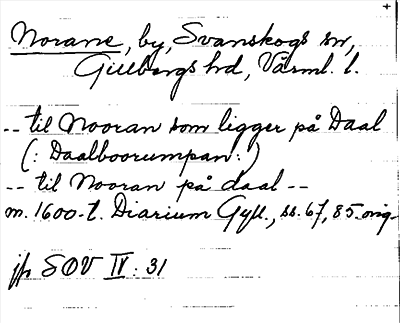 Norane, by, Svanskogs sn,
Gillbergs hd, Värml. l.
-- til Nooran som ligger på Daal
(: Daalboorumpan :)
-- til Nooran på daal --
m. 1600-t. Diarium Gyll., ss. 67, 85. orig.
jfr SOV IV : 31